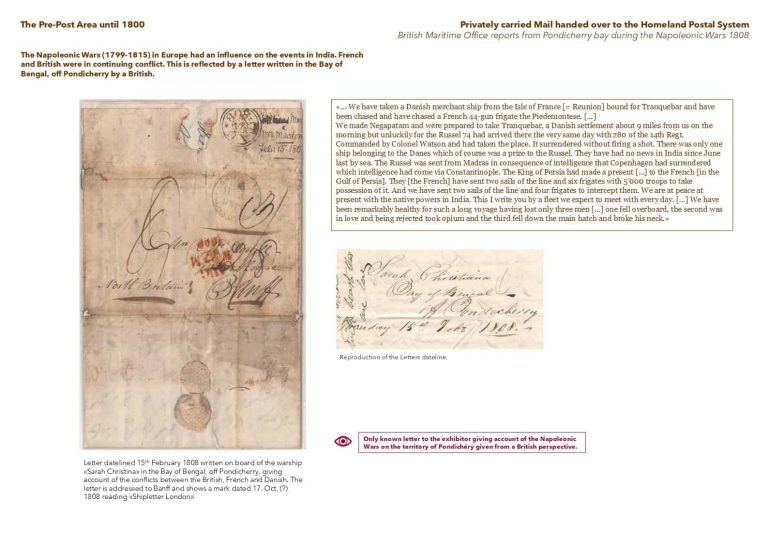 The Pre-Post Area until 1800
Privately carried Mail handed over to the Homeland Postal System
British Maritime Office reports from Pondicherry bay during the Napoleonic Wars 1808
The Napoleonic Wars (1799-1815) in Europe had an influence on the events in India. French
and British were in continuing conflict. This is reflected by a letter written in the Bay of
Bengal, off Pondicherry by a British.
«... We have taken a Danish merchant ship from the Isle of France [= Reunion] bound for Tranquebar and have
been chased and have chased a French 44-gun frigate the Piedemontese. [...]
We made Negapatam and were prepared to take Tranquebar, a Danish settlement about 9 miles from us on the
morning but unluckily for the Russel 74 had arrived there the very same day with 280 of the 14th Regt.
Commanded by Colonel Watson and had taken the place. It surrendered without firing a shot. There was only one
ship belonging to the Danes which of course was a prize to the Russel. They have had no news in India since June
last by sea. The Russel was sent from Madras in consequence of intelligence that Copenhagen had surrendered
which intelligence had come via Constantinople. The King of Persia had made a present [...] to the French [in the
Gulf of Persia]. They [the French] have sent two sails of the line and six frigates with 5'000 troops to take
possession of it. And we have sent two sails of the line and four frigates to intercept them. We are at peace at
present with the native powers in India. This I write you by a fleet we expect to meet with every day. [...] We have
been remarkably healthy for such a long voyage having lost only three men [...] one fell overboard, the second was
in love and being rejected took opium and the third fell down the main hatch and broke his neck.»
North Britain
Banff
Sarah Christiana
Bay of Bengal
off Pondicherry
Monday 15th Feby 1808.
Reproduction of the Letters dateline.
Only known letter to the exhibitor giving account of the Napoleonic
Wars on the territory of Pondichéry given from a British perspective.
Letter datelined 15th February 1808 written on board of the warship
«Sarah Christina» in the Bay of Bengal, off Pondicherry, giving
account of the conflicts between the British, French and Danish. The
letter is addressed to Banff and shows a mark dated 17. Oct. (?)
1808 reading «Shipletter London»